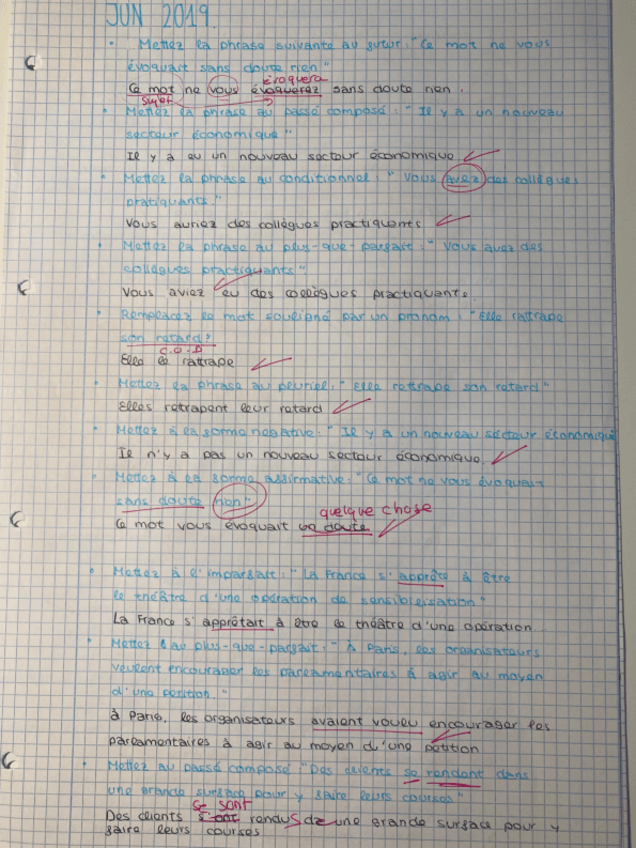 JUN 2019.
• Mettez la phrase suivante au futur: "Ce mot ne vous
évoquait sans doute rien."
évoquera
Ce mot ne vous évoquerez sans doute rien.
sujet
• Mettez la phrase au passé composé: "Il y a un nouveau
secteur économique"
Il y a eu un nouveau secteur économique.
• Mettez la phrase au conditionnel: "Vous avez des collègues
pratiquants."
Vous auriez des collègues practiquants
• Mettez la phrase au plus-que-parfait: "Vous avez des
collègues practiquants"
Vous aviez eu des collègues practiquants.
• Remplacez le mot souligné par un pronom: "Elle rattrape
son retard"
C.O.D
Elle le rattrape
• Mettez la phrase au pluriel: "Elle rattrape son retard"
Elles ratrapent leur retard
• Mettez à la forme negative: "Il y a un nouveau secteur économique
Il n'y a pas un nouveau secteur économique.
• Mettez à la forme assirmative: "Ce mot ne vous évoquait
sans doute rien"
quelque chose
Ce mot vous évoquait doute
• Mettez à l'imparfait: "La France s'apprête à être
le théâtre d'une opération de sensibilisation"
La France s'apprêtait à être le théâtre d'une opération
• Mettez au plus-que-parfait: "À Paris, les organisateurs
veulent encourager les parlamentaires à agir au moyen
d'une petition."
à Paris, les organisateurs avaient voulu encourager les
parlamentaires à agir au moyen d'une petition
• Mettez au passé composé "Des clients se rendent dans
une grande surface pour y faire leurs courses"
se sont
Des clients s'ont rendus une grande surface pour y
faire leurs courses